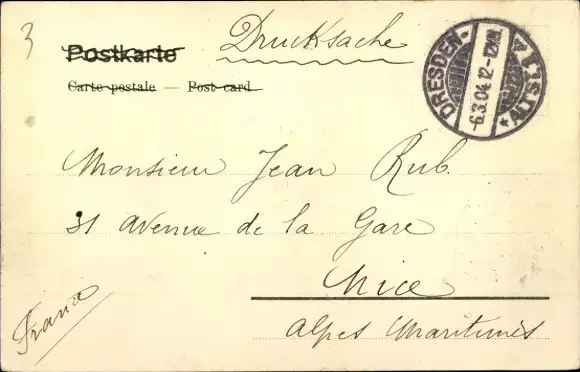 3
Postkarte Drucksache
Carte postale — Post card
DRESDEN-ALTST. 1
6.3.04.12-1
Monsieur Jean Rub.
31 avenue de la Gare
Nice
Alpes Maritimes
France